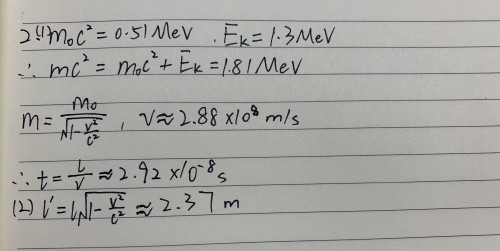 2(1) m₀c² = 0.51MeV . Eₖ = 1.3MeV
∴ mc² = m₀c² + Eₖ = 1.81MeV
m = m₀/√(1-v²/c²) , v ≈ 2.88 × 10⁸ m/s
∴ t = l/v ≈ 2.92 × 10⁻⁸ s
(2) l' = l√(1-v²/c²) ≈ 2.37 m